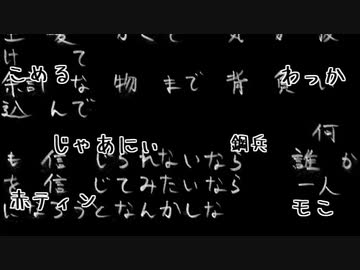 け て
こめる
余計 な 物 まで 背 負
わっか
込 んで
じゃあにぃ
鋼兵
何
も 信 じられないなら 誰 か
を 信 じてみたいなら 一人
赤ティン
になろうとなんかしな
モこ